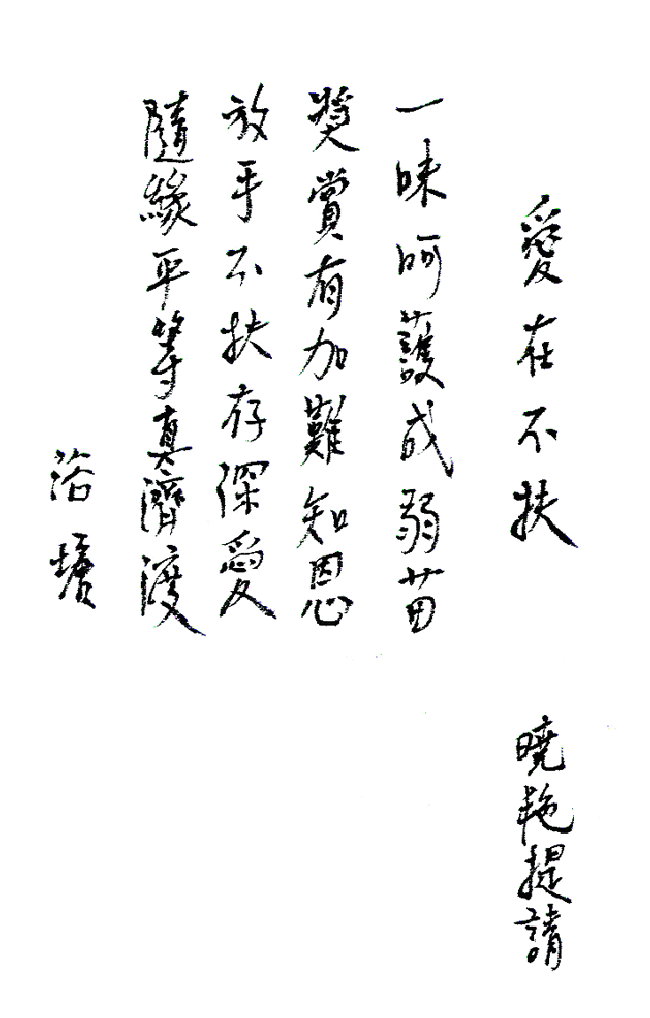 愛在不扶
曉艳提請
一味呵護成弱苗
獎賞有加難知恩
放手不扶存深愛
隨緣平等真濟渡